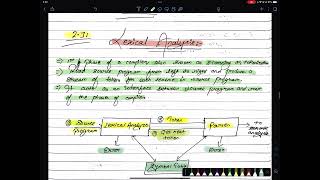 2-3:
Lexical Analysis:-
1) 1st phase of a compiler also known as Scanning or
2) Read source program from left to right and produce a
stream of token for each lexeme in source program.
3) It work as an interface between source program and rest
of the phase of compiler
① Source
program
Lexical Analyzer
② Token
③ Get next
token
Parser
to
semantic
analysis
Error
Error
Symbol Table